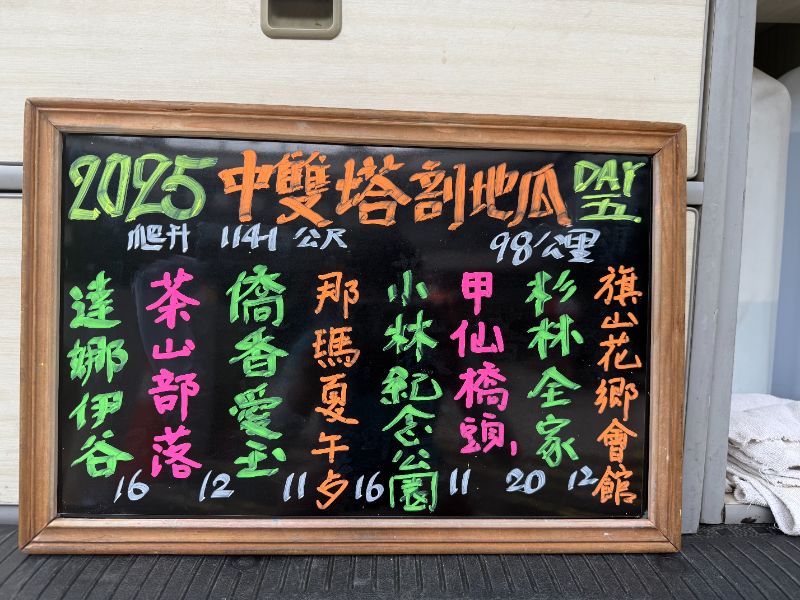 2025 中雙塔剖地瓜 DAY 五.
爬升 1141 公尺 98公里
達娜伊谷
16
茶山部落
12
僑香愛玉
11
那瑪夏午夕
16
小林紀念公園
11
甲仙橋頭
20
杉林全家
12
旗山花鄉會館